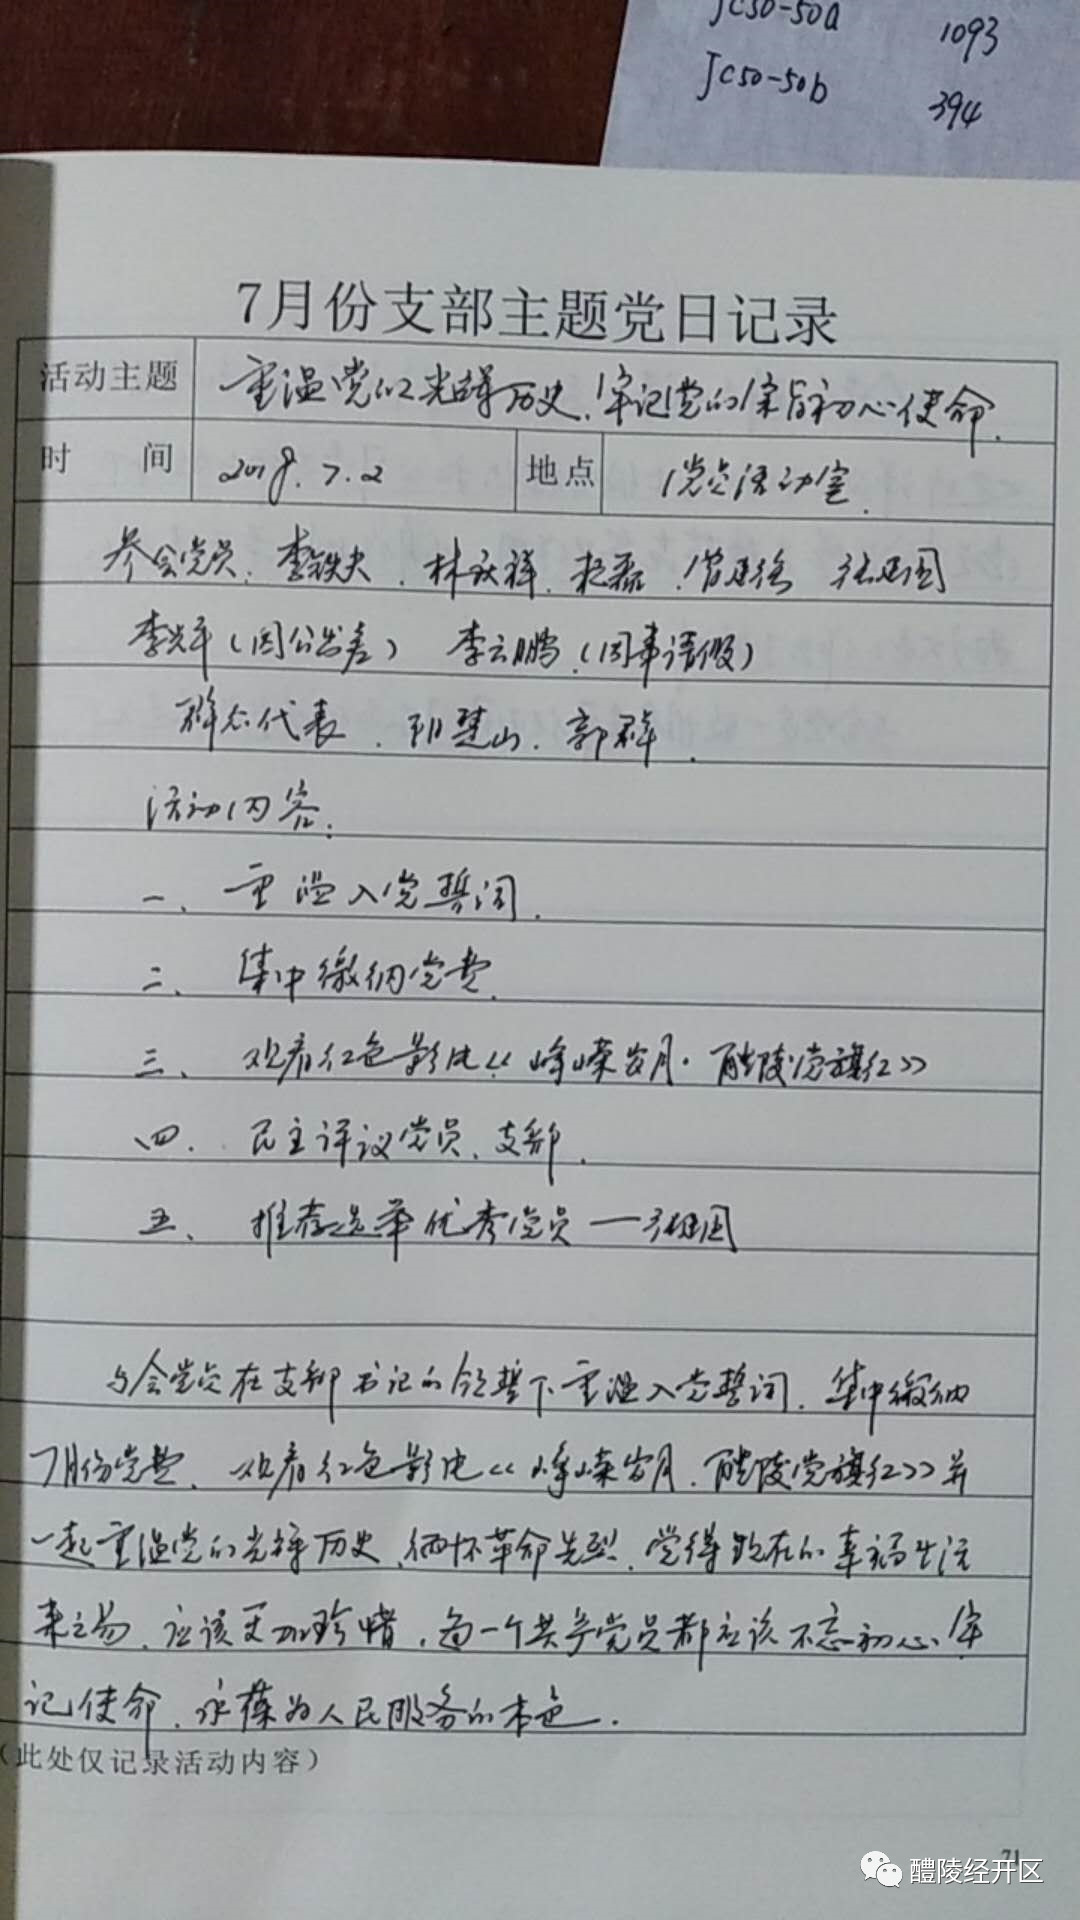 JC50-50a 1093
JC50-50b 394
7月份支部主题党日记录
活动主题 重温党的光辉历史、牢记党的宗旨初心使命.
时间 2018.7.2 地点 党员活动室.
参会党员: 李铁夫. 林跃祥. 杨磊.
李光平(因公出差) 李云鹏(因事请假)
群众代表. 山. 郭群.
活动内容:
一、重温入党誓词.
二、集中缴纳党费.
三、观看红色影片《峥嵘岁月·醴陵党旗红》
四. 民主评议党员、支部.
五、推荐选举优秀党员——
与会党员在支部书记的领誓下重温入党誓词. 集中缴纳
7月份党费. 观看红色影片《峥嵘岁月.醴陵党旗红》并
一起重温党的光辉历史, 缅怀革命先烈. 觉得现在的幸福生活
来之易. 应该更加珍惜. 每一个共产党员都应该不忘初心、牢
记使命. 永葆为人民服务的本色.
(此处仅记录活动内容)
71
醴陵经开区